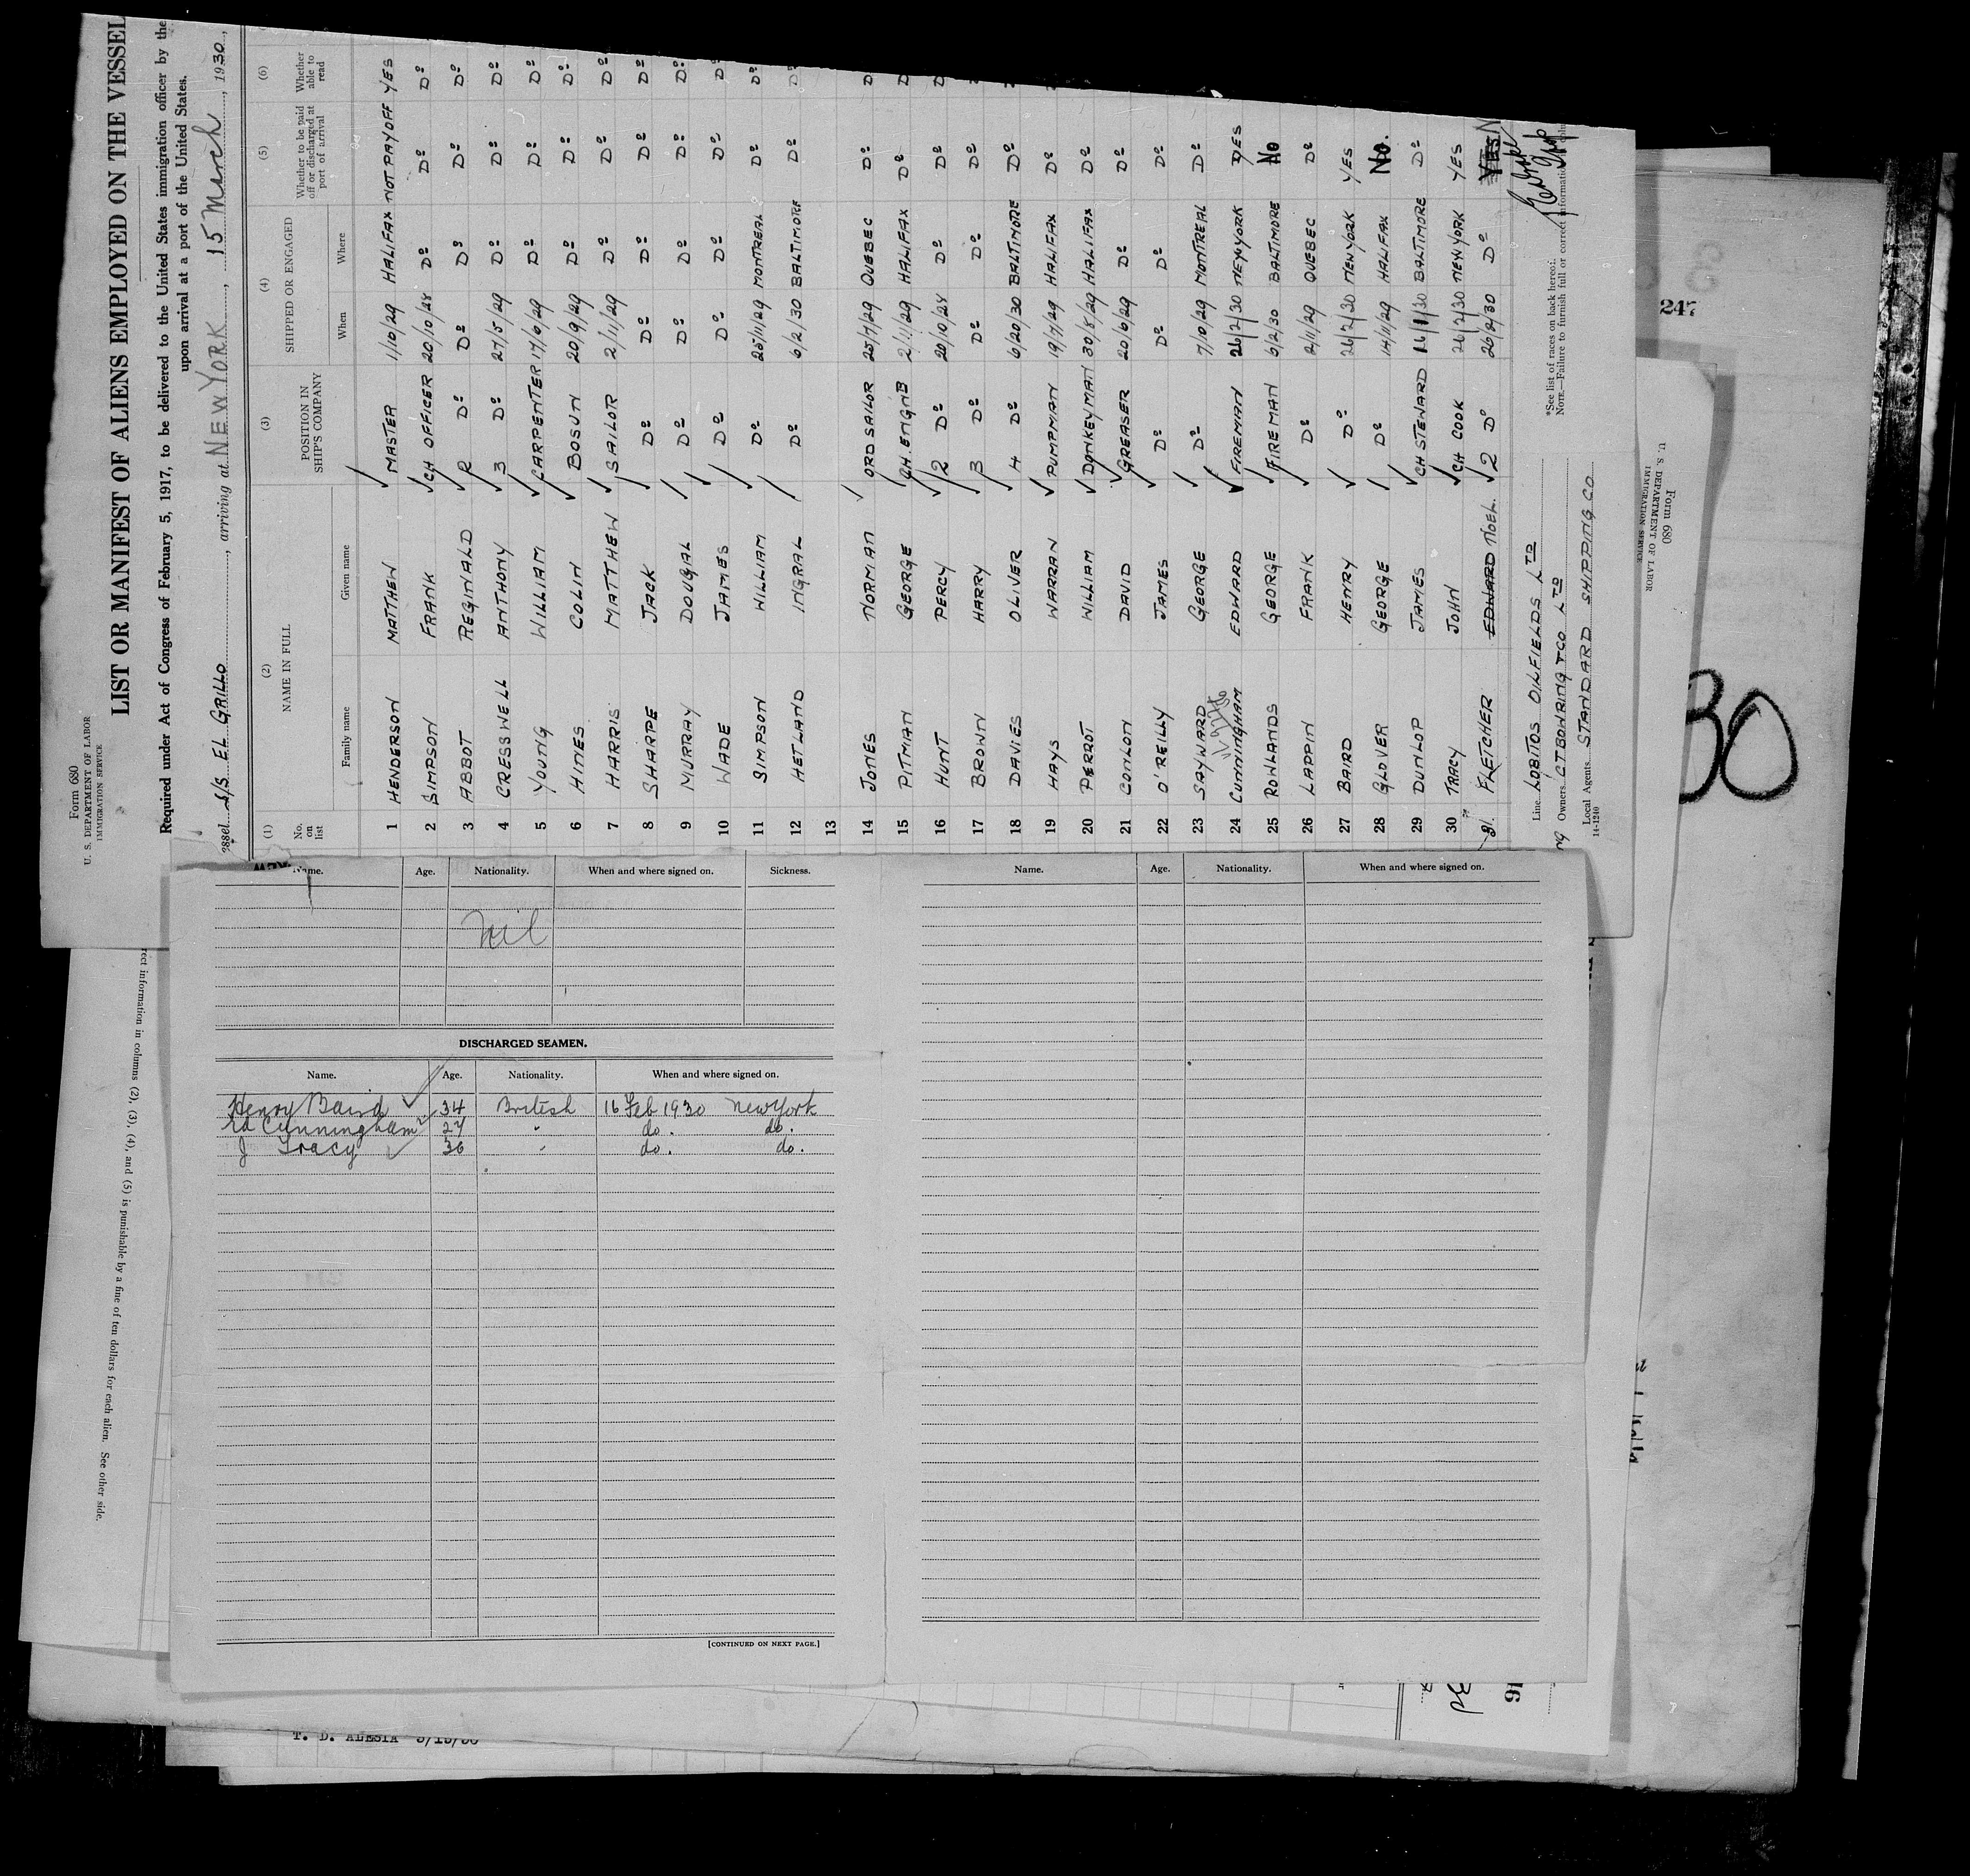 Form 680
U. S. DEPARTMENT OF LABOR
IMMIGRATION SERVICE
LIST OR MANIFEST OF ALIENS EMPLOYED ON THE VESSEL
Required under Act of Congress of February 5, 1917, to be delivered to the United States immigration officer by the
upon arrival at a port of the United States.
S/S EL GRILLO, arriving at NEW YORK, 15 March, 1930,
(1) (2) (3) (4) (5) (6)
No. on list
NAME IN FULL
Family name Given name
POSITION IN SHIP'S COMPANY
SHIPPED OR ENGAGED
When Where
Whether to be paid off or discharged at port of arrival
Whether able to read
1 HENDERSON MATHEW MASTER 1/10/29 HALIFAX NOT PAY OFF YES
2 SIMPSON FRANK CH OFFICER 20/10/28 Do Do Do
3 ABBOT REGINALD 2 Do Do Do Do Do
4 CRESSWELL ANTHONY 3 Do 27/5/29 Do Do Do
5 YOUNG WILLIAM CARPENTER 17/6/29 Do Do Do
6 HINES COLIN BOSUN 20/9/29 Do Do Do
7 HARRIS MATTHEW SAILOR 2/11/29 Do Do Do
8 SHARPE JACK Do Do Do Do Do
9 MURRAY DOUGAL Do Do Do Do Do
10 WADE JAMES Do Do Do Do Do
11 SIMPSON WILLIAM Do 25/11/29 MONTREAL Do Do
12 HETLAND INGRAL Do 6/2/30 BALTIMORE Do Do
13
14 JONES NORMAN ORD SAILOR 25/7/29 QUEBEC Do
15 PITMAN GEORGE CH. ENGNB 2/11/29 HALIFAX Do
16 HUNT PERCY 2 Do 20/10/28 Do Do
17 BROWN HARRY 3 Do Do Do Do
18 DAVIES OLIVER 4 Do 6/20/30 BALTIMORE Do
19 HAYS WARRAN PUMPMAN 19/7/29 HALIFAX Do
20 PERROT WILLIAM DONKEYMAN 30/8/29 HALIFAX Do
21 CONLON DAVID GREASER 20/6/29 Do Do
22 O'REILLY JAMES Do Do Do Do
23 SAYWARD GEORGE Do 7/10/29 MONTREAL Do
24 CUNNINGHAM EDWARD FIREMAN 26/2/30 NEW YORK YES
25 ROWLANDS GEORGE FIREMAN 6/2/30 BALTIMORE No
26 LAPPIN FRANK Do 2/11/29 QUEBEC Do
27 BAIRD HENRY Do 26/2/30 NEW YORK YES
28 GLOVER GEORGE Do 14/11/29 HALIFAX No.
29 DUNLOP JAMES CH STEWARD 16/1/30 BALTIMORE Do
30 TRACY JOHN CH COOK 26/2/30 NEW YORK YES
31. FLETCHER EDWARD NOEL. 2 Do 26/2/30 Do YES
Line LOBITOS OILFIELDS LTD
Owners CTBOWRING &CO LTD
Local Agents STANDARD SHIPPING CO
14-1240
*See list of races on back hereof.
NOTE.—Failure to furnish full or correct information
Form 680
U. S. DEPARTMENT OF LABOR
IMMIGRATION SERVICE
247
30
Name. Age. Nationality. When and where signed on. Sickness.
Nil
DISCHARGED SEAMEN.
Name. Age. Nationality. When and where signed on.
Henry Baird 34 British 16 Feb 1930 New York
Ed Cunningham 27 " do. do.
J Tracy 36 " do. do.
[CONTINUED ON NEXT PAGE.]
Name. Age. Nationality. When and where signed on.
rect information in columns (2), (3), (4), and (5) is punishable by a fine of ten dollars for each alien. See other side.
T. D. ALESIA 3/15/30
91